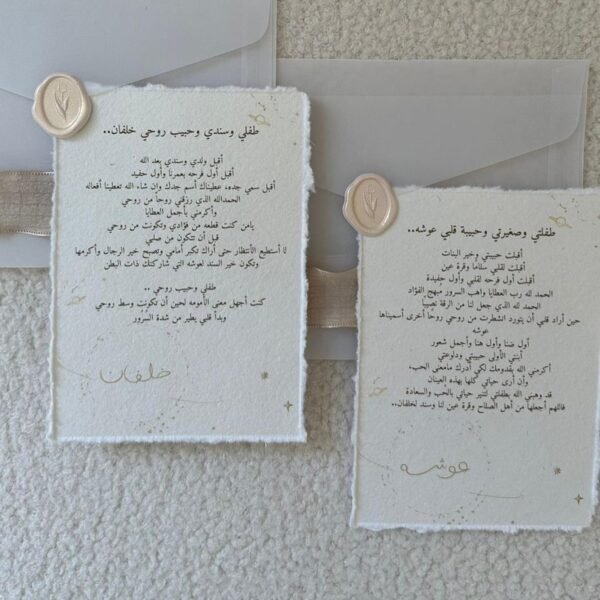 طفلي وسندي وحبيب روحي خلفان..
أقبل ولدي وسندي بعد الله
أقبل أول فرحه بعمرنا وأول حفيد
أقبل سمي جده، عطيناك أسم جدك وإن شاء الله تعطينا أفعاله
الحمدالله الذي رزقني روحاً من روحي
وأكرمني بأجمل العطايا
يامن كنت قطعه من فؤادي وتكونت من روحي
قبل أن تتكون من صلبي
لا أستطيع الأنتظار حتى أراك تكبر أمامي وتصبح خير الرجال وأكرمها
وتكون خير السند لعوشه التي شاركتك ذات البطن
طفلي وحبيب روحي ..
كنت أجهل معنى الأمومه لحين أن تكونت وسط روحي
وبدأ قلبي يطير من شدة السُرور
خلفان
طفلتي وصغيرتي وحبيبة قلبي عوشه..
أقبلت حبيبتي وخير البنات
أقبلت لقلبي سلاماً وقرة عين
أقبلت أول فرحه لقلبي وأول حفيدة
الحمد لله رب العطايا واهب السرور مبهج الفؤاد
الحمد لله الذي جعل لنا من الرقة نصيباً
حين أراد قلبي أن يتورد انشطرت من روحي روحاً أخرى أسميناها
عوشه
أول ضنا وأول هنا وأجمل شعور
أبنتي الأولى حبيبتي ودلوعتي
أكرمني الله بقدومك لكي أدرك مامعنى الحب.
وأن أرى حياتي كلها بهذه العينان
قد وهبني الله بطفلتي لتنير حياتي بالحب والسعادة
فاللهم أجعلها من أهل الصلاح وقرة عين لنا وسند لخلفان..
عوشه